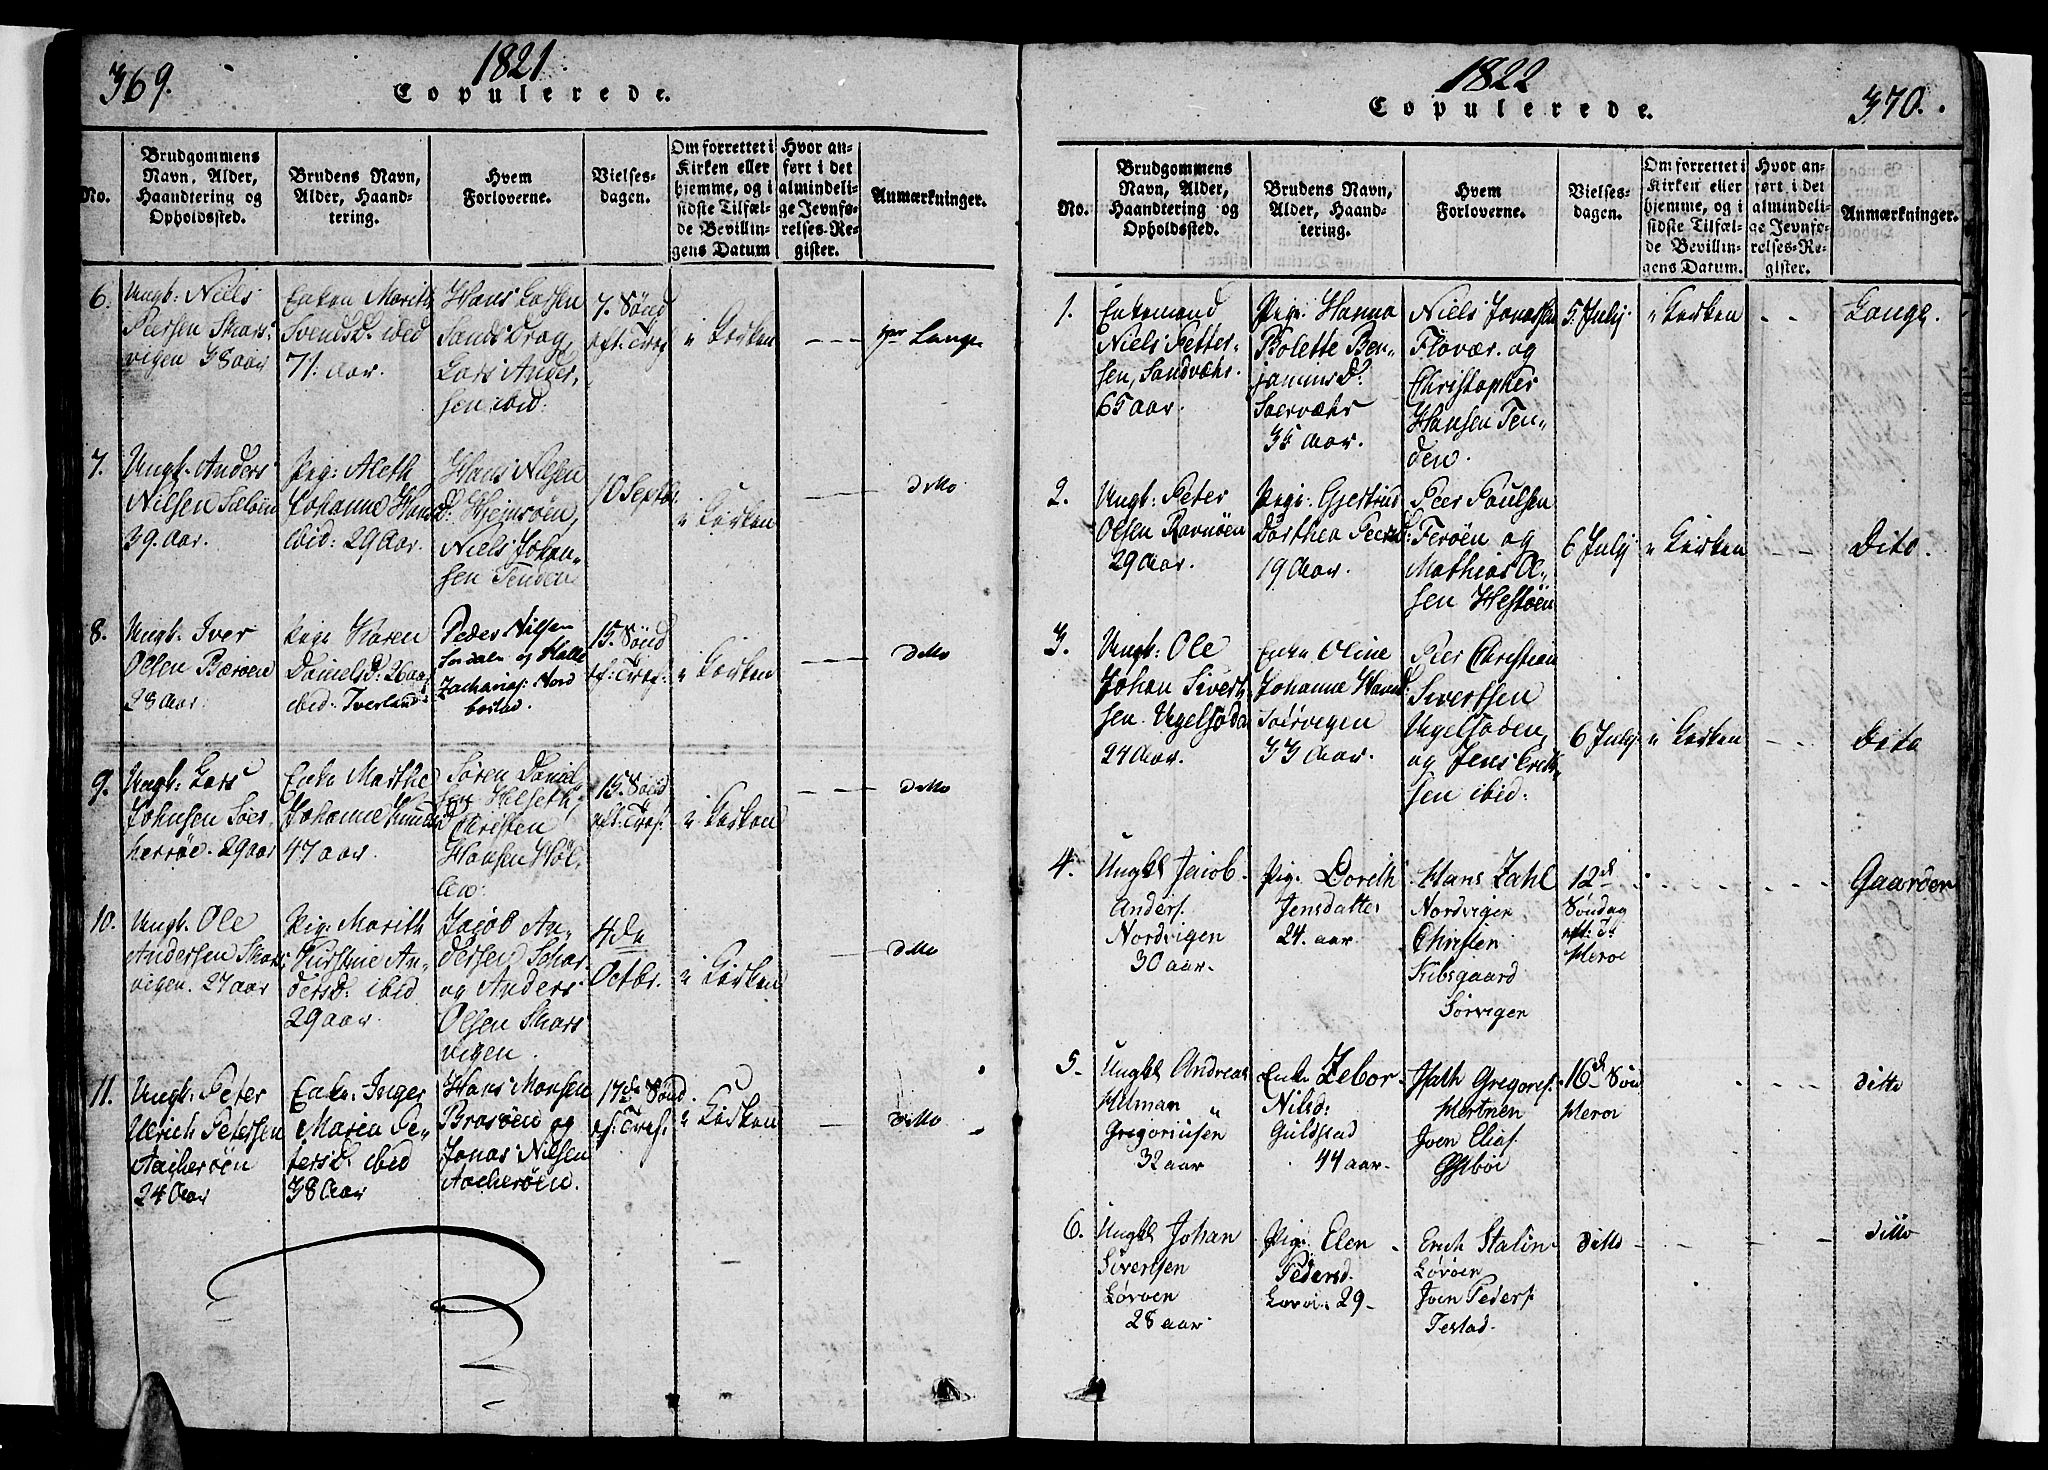 369.
1821.
Copulerede.
No.
Brudgommens
Navn, Alder,
Haandtering og
Opholdssted.
Brudens Navn,
Alder, Haand-
tering.
Hvem
Forloverne.
Vielses-
dagen.
Om forrettet i
Kirken eller
hjemme, og i
sidste Tilfæl-
de Bevillin-
gens Datum
Hvor an-
ført i det
almindeli-
ge Jevnfø-
relses-Re-
gister.
Anmærkninger.
6.
Ungk: Niels
Peersen Skars-
vigen 38 aar
Enken Marith
Svendsd: ibid
71: aar.
Hans Larsen
Sands Drag,
Lars Ander-
sen ibid:
7. Sönd
eft: Tref
i Kirken
hr Lange
7.
Ungk. Anders
Nilsen
39. Aar.
Pig: Aleth
Johanne Hansd:
ibid: 29 Aar.
Hans Nilsen
Hjemöen,
Niels Johan-
sen Tenden
10 Septbr
i Kirken
ditto
8.
Ungk. Iver
Olsen Bæröen
28 Aar.
Pige Karen
Daniels D: 26 aar
ibid: Tverland
Peder Nilsen
Sordalen og Halle
Zacharias: Nord
borstad.
15. Sönd
ef: Tref:
i Kirken
ditto
9.
Ungk: Lars
Johnsen Söer-
herröe. 29 aar
Enke Marthe
Johanne Knudsd
47 aar.
Sören Daniel-
sen Helseth,
Christen
Hansen Höl-
len:
15. Sönd
eft: Tref.
i Kirken
ditto
10.
Ungk. Ole
Andersen Skars-
vigen. 27 aar
Pig: Marith
Kirstine An-
dersd: ibid
29 aar.
Jacob An-
dersen Skar-
og Anders
Olsen Skars
vigen.
4de
Octbr.
i Kirken
ditto
11.
Ungk: Peter
Ulrich Petersen
Aacheröen
24 Aar
Enke: Inger
Maria Pe-
tersd: ibid
38 Aar
Hans Monsen
Brasöen og
Jonas Nilsen
Aacheröen.
17de Sönd
ef: Tref:
i Kirken
ditto
1822
Copulerede.
370.
No.
Brudgommens
Navn, Alder,
Haandtering og
Opholdssted.
Brudens Navn,
Alder, Haand-
tering.
Hvem
Forloverne.
Vielses-
dagen.
Om forrettet i
Kirken eller
hjemme, og i
sidste Tilfæl-
de Bevillin-
gens Datum.
Hvor an-
ført i det
almindeli-
ge Jevnfø-
relses-Re-
gister.
Anmærkninger.
1.
Enkemand
Niels Petter-
sen, Sandvæhr.
65 aar.
Pige: Hanna
Bolette Ben-
jaminsd:
Soervæhr
35 Aar.
Niels Jonassen
Flovær. og
Christopher
Hansen Ten-
den.
5 July
i Kirken
Lange.
2.
Ungk: Peter
Olsen Ravnöen
29 Aar.
Pige: Gjertrud
Dorthea Peersd:
19 Aar.
Peer Poulsen
Feröen og
Mathias Ol-
sen Hestöen
6 July
i Kirken
Dito.
3.
Ungk: Ole
Johan Sivert-
sen. Ugelsöden
24 Aar.
Enke Oline
Johanna Hansd:
Soervigen
33 Aar.
Peer Christian
Sivertsen
Ugelsöden,
og Jens Erik-
sen ibid:
6 July
i Kirken
Dito
4.
Ungkl Jacob
Anders.
Nordvigen
30 aar.
Pig: Dorith
Jensdatter
24. aar.
Hans Zahl
Nordvigen
Christen
Kibsgaard
Sörvigen
12d
Söndag
eft: T:
Heroe
Gaarder
5.
Ungkl Andreas
Hilman
Gregoriusen
32 aar
Enke Zebor
Nilsd:
Guldstad
44 aar.
Gregorius.
Hertnen
Joen Elias.
16d Sön
Heroe
ditto
6.
Ungkl Johan
Sivertsen
Lövöen
28 aar.
Pige Elen
Pedersd.
29
Erich Stalin
Lövöen
Joen Peders.
Testad.
ditto
ditto